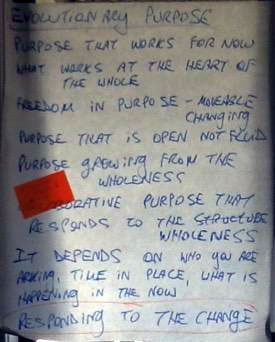 EVOLUTIONARY PURPOSE
PURPOSE THAT WORKS FOR NOW
WHAT WORKS AT THE HEART OF
THE WHOLE
FREEDOM IN PURPOSE - MOVEABLE
CHANGING
PURPOSE THAT IS OPEN NOT FLUID
PURPOSE GROWING FROM THE
WHOLENESS
PURPOSE THAT
RESPONDS TO THE STRUCTURE
WHOLENESS
IT DEPENDS ON WHO YOU ARE
ASKING, TIME IN PLACE, WHAT IS
HAPPENING IN THE NOW
RESPONDING TO THE CHANGE